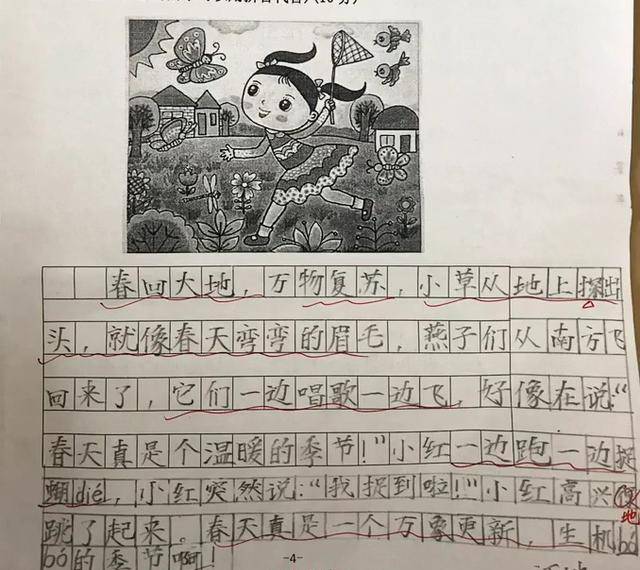 春回大地，万物复苏，小草从地上探出
头，就像春天弯弯的眉毛，燕子们从南方飞
回来了，它们一边唱歌一边飞，好像在说：“
春天真是个温暖的季节！”小红一边跑一边捉
蝴dié，小红突然说：“我捉到啦！”小红高兴地
跳了起来。春天真是一个万象更新，生机bó
bó的季节啊！
-4-